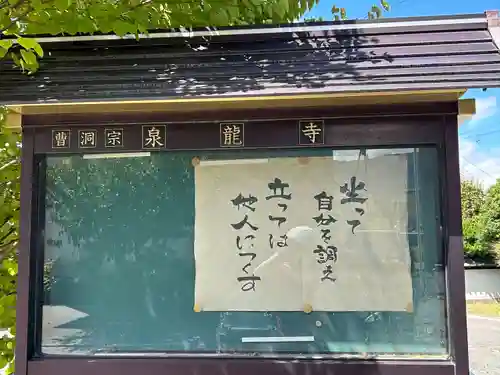 曹洞宗 泉龍寺
坐って
自分を調え
立っては
他人につくす